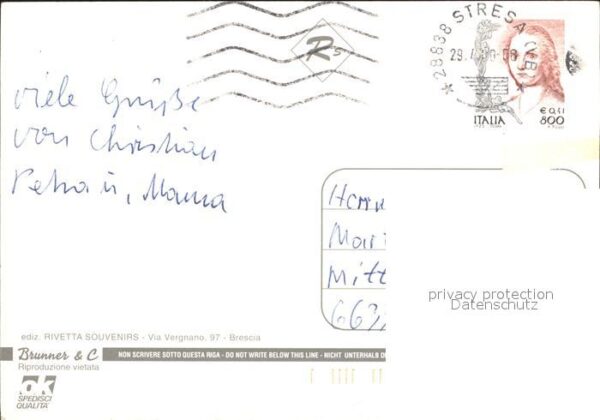 28838 STRESA (VB)
Rs
ITALIA
€ 0,41
800
viele Grüße
von Christian
Petra u. Mama
Herrn
Mitt
privacy protection
Datenschutz
ediz. RIVETTA SOUVENIRS - Via Vergnano, 97 - Brescia
Brunner & C
NON SCRIVERE SOTTO QUESTA RIGA - DO NOT WRITE BELOW THIS LINE - NICHT UNTERHALB
Riproduzione vietata
OK
SPEDISCI
QUALITA'